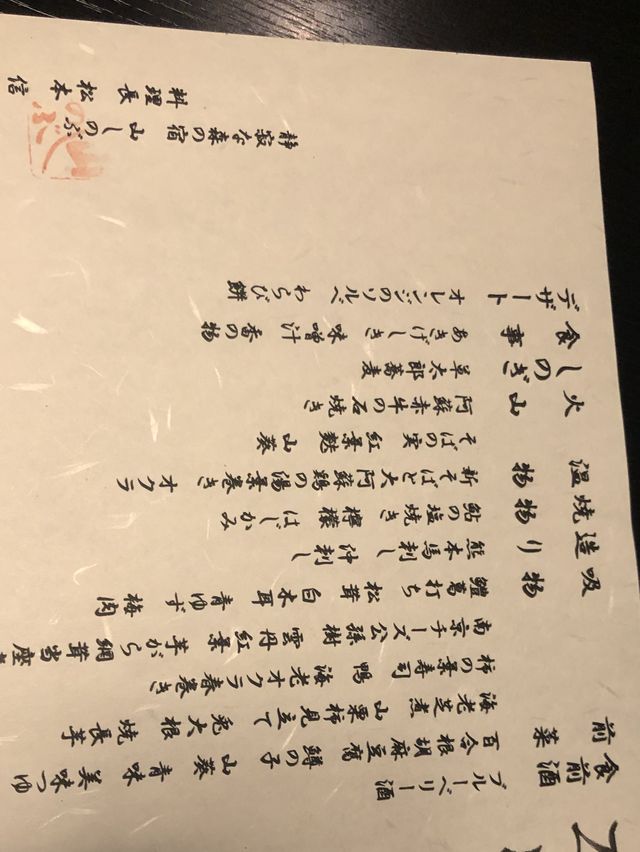 食前酒 ブルーベリー酒
前菜 百合根胡麻豆腐 鱒の子 山葵 青味 美味つゆ
海老芝煮 山柿見立て 兎大根 焼長芋
柿の葉寿司 鴨 海老オクラ春巻き
南京チーズ 公孫樹 雲丹 紅葉芋 がら網 茸当座
吸物 鱧葛打ち 松茸 白木耳 青ゆず 梅肉
造り 熊本馬刺し 沖刺し
焼物 鮎の塩焼き 檸檬 はじかみ
温物 新そばと大阿蘇鶏の湯葉巻き オクラ
そばの実 紅葉麩 山葵
火山 阿蘇赤牛の石焼き
しのぎ 草太郎蕎麦
食事 あきげしき 味噌汁 香の物
デザート オレンジのソルベ わらび餅
静寂な森の宿 山しのぶ
料理長 松本 信